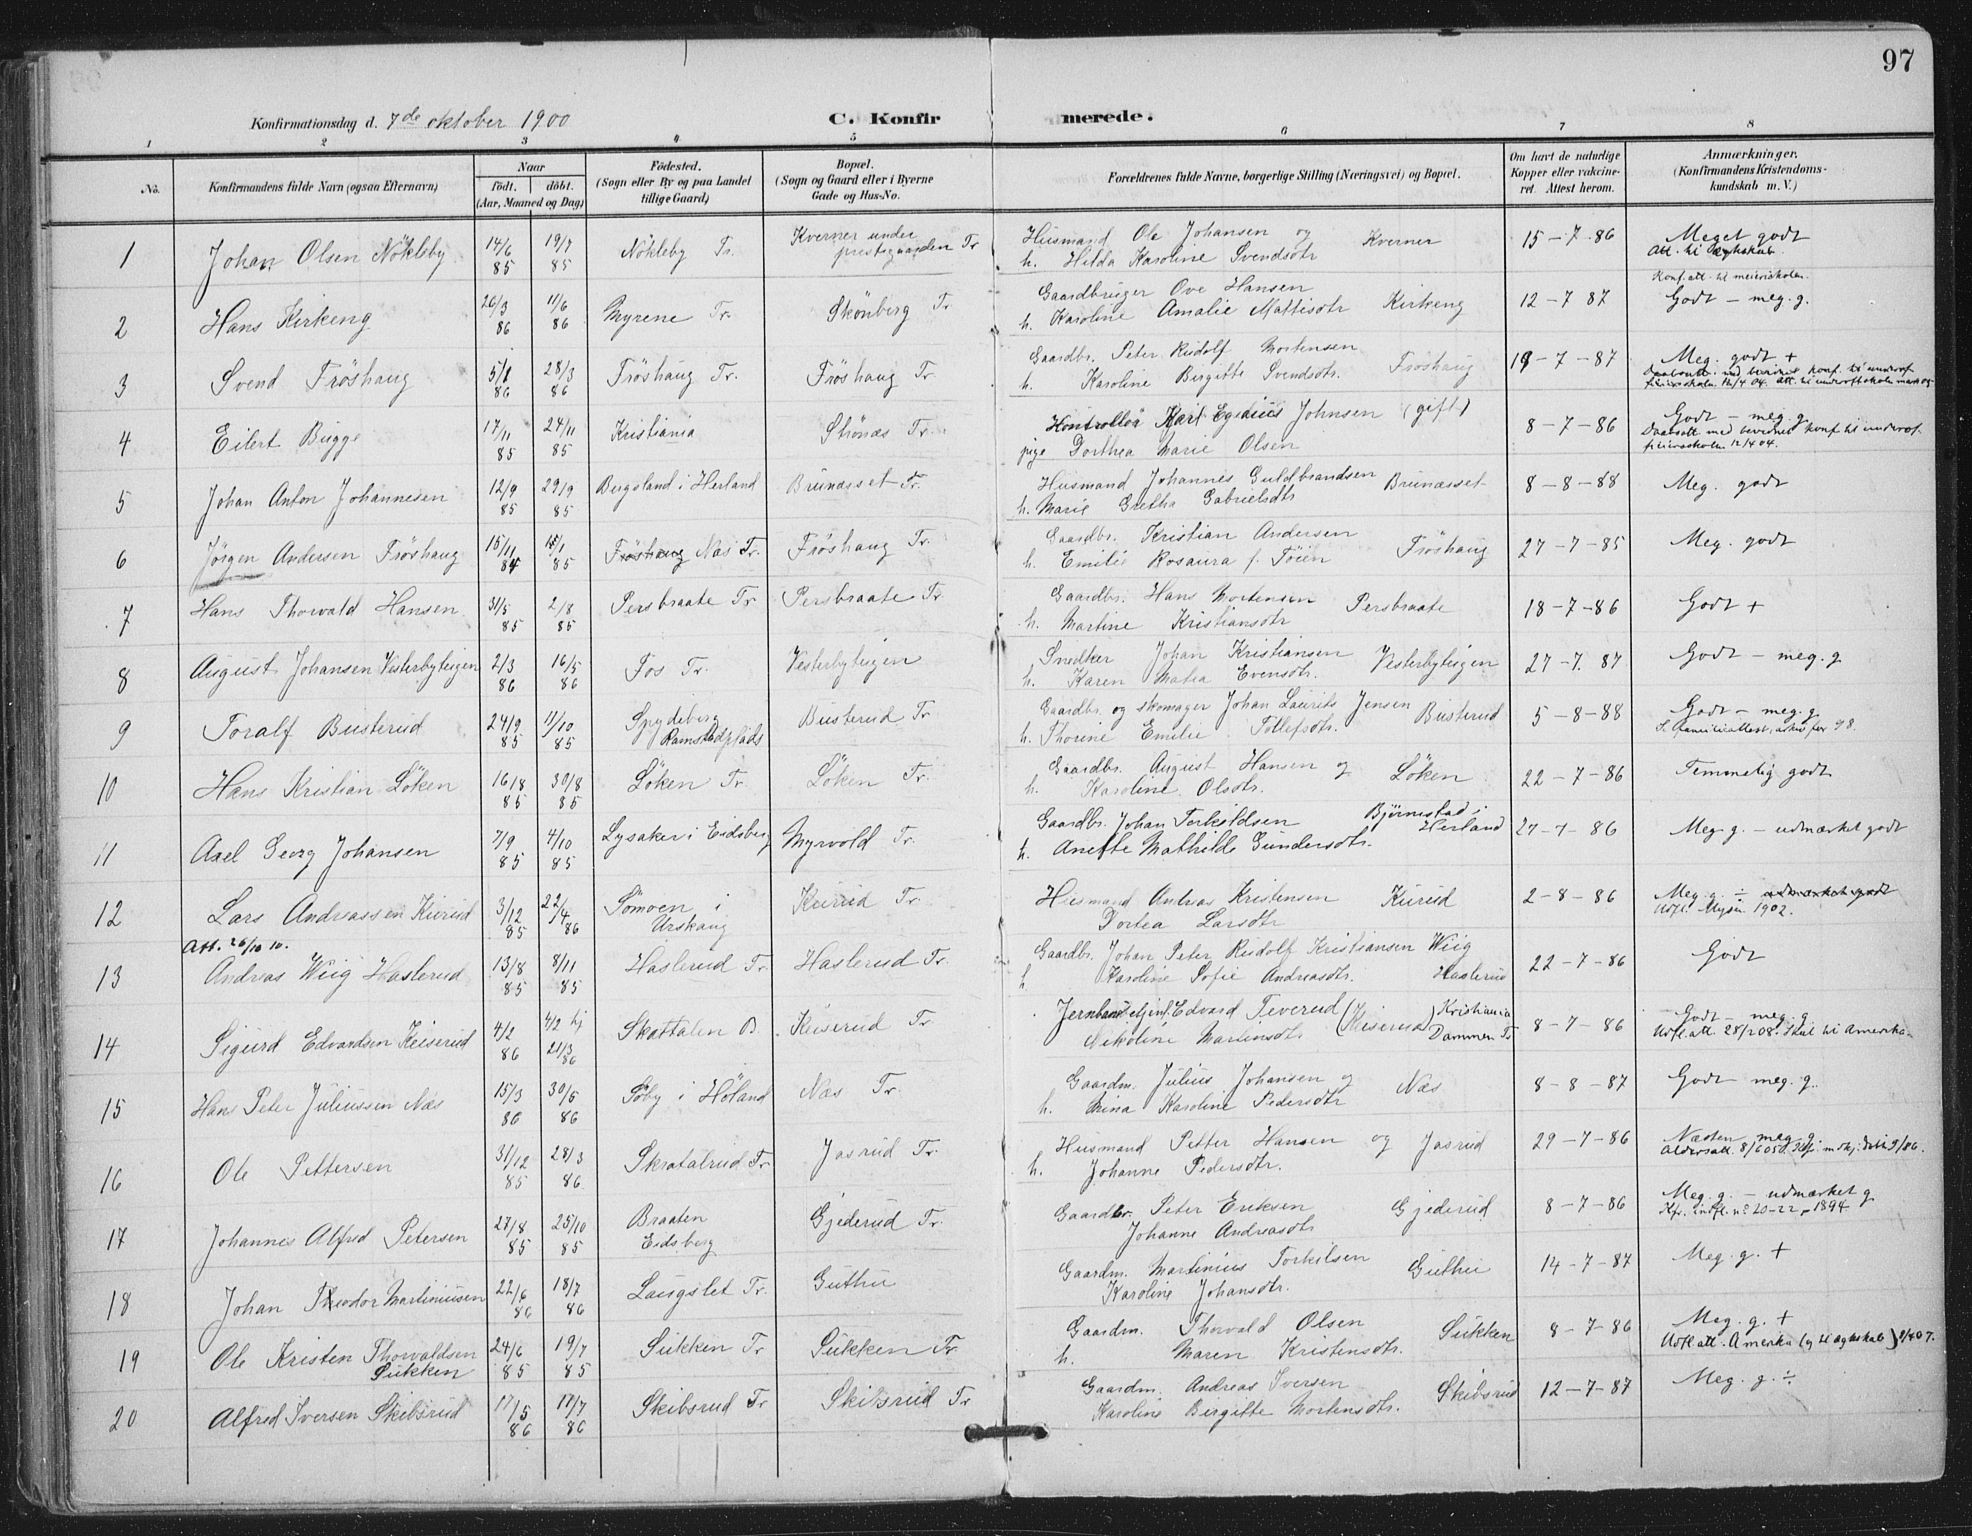 97
Konfirmationsdag d. 7de oktober 1900 C. Konfirmerede.
1 2 3 4 5 6 7 8
No. Konfirmandens fulde Navn (ogsaa Efternavn) Naar födt. döbt. (Aar, Maaned og Dag) Födested. (Sogn eller By og paa Landet tillige Gaard) Bopæl. (Sogn og Gaard eller i Byerne Gade og Hus-No. Forældrenes fulde Navne, borgerlige Stilling (Næringsvei) og Bopæl. Om havt de naturlige Kopper eller vakcineret. Attest herom. Anmærkninger. (Konfirmandens Kristendomskundskab m. V.)
1 Johan Olsen Nökleby 14/6 85 19/7 85 Nökleby Tr. Kverner under prestegaarden Tr Husmand Ole Johansen og Kverner 15-7-86 Meget godt
h. Hilda Karoline Svendsdtr Att. til ægteskab.
Konf.att. til meieriskolen.
2 Hans Kirkeng 26/3 86 11/6 86 Myrene Tr. Skönberg Tr Gaardbruger Ove Hansen Kirkeng 12-7 87 Godt - meg. g.
h. Karoline Amalie Mattisdtr
3 Svend Fröshaug 5/1 86 28/3 86 Fröshaug Tr. Fröshaug Tr Gaardbr. Peter Rudolf Mortensen Fröshaug 19-7-87 Meg. godt +
h. Karoline Birgitte Svendsdtr.
4 Eilert Bugge 17/11 85 24/11 85 Kristiania Skönæs Tr. Kontrollør Karl Egidius Johnsen (gift) 8-7-86 Godt - meg. g.
pige Dorthea Marie Olsen
5 Johan Anton Johannesen 12/9 85 29/9 85 Bergsland i Herland Brunæsset Tr. Husmand Johannis Guldbrandsen Brunæsset 8-8-88 Meg. godt
h. Marie Gretha Gabrielsdtr
6 Jørgen Andersen Fröshaug 15/11 84 15/1 85 Fröshaug Næs Tr. Fröshaug Tr. Gaardbr. Kristian Andersen Fröshaug 27-7-85 Meg. godt
h. Emilie Rosaura f. Töien
7 Hans Thorvald Hansen 31/5 85 2/8 85 Persbraate Tr Persbraate Tr Gaardbr. Hans Mortensen Persbraate 18-7-86 Godt +
h. Martine Kristiansdtr
8 August Johansen Vesterbyteigen 2/3 86 16/5 86 Fos Tr. Vesterbyteigen Snedker Johan Kristiansen Vesterbyteigen 27-7. 87 Godt - meg. g
h. Karen Matea Evensdtr.
9 Toralf Busterud 24/9 85 11/10 85 Spydeberg Ramstadplads Busterud Tr Gaardbr. og skomager Johan Laurits Jensen Busterud 5-8-88 Godt - meg. g
h. Thorine Emilie Tollefsdtr.
10 Hans Kristian Löken 16/8 85 30/8 85 Löken Tr Löken Tr. Gaardbr. August Hansen og Löken 22-7-86 Temmelig godt
h. Karoline Olsdtr.
11 Axel Georg Johansen 7/9 85 4/10 85 Lysaker i Eidsberg Myrvold Tr. Gaardbr. Johan Torkildsen Björnestad i Herland 27-7-86 Meg g. - udmærket godt
h. Anette Mathilde Gundersdtr.
12 Lars Andreassen Kurud 3/12 85 22/4 86 Sömoen i Urskaug Kurud Tr. Husmand Andreas Kristensen Kurud 2-8-86 Meg. g. ÷ udmærket godt
Dortea Larsdtr 1902.
Att. 26/10 10.
13 Andreas Wiig Haslerud 13/8 85 8/11 85 Haslerud Tr Haslerud Tr. Gaardbr. Johan Peter Rudolf Kristiansen Wiig 22-7-86 Godt
h Karoline Sofie Andreasdtr. Haslerud
14 Sigurd Edvardsen Keiserud 4/2 86 4/2 hj 21/3 86 Skattalen B. Keiserud Tr Edvard Teverud (Keiserud) Kristiania 8-7-86 Godt - meg. g.
Nikoline Martinsdtr Dammen Tr Udfl.att. 25/2 08. Skal til Amerika.
15 Hans Peter Juliussen Næs 15/3 86 30/5 86 Söby i Höland Næs Tr. Gaardm. Julius Johansen og Næs 8-8-87 Godt meg. g.
h. Mina Karoline Pedersdtr
16 Ole Pettersen 31/12 85 28/3 86 Skratalrud Tr Josrud Tr. Husmand Petter Hansen og Josrud 29-7-86 Næsten meg. g.
h. Johanne Pedersdtr.
17 Johannes Alfred Petersen 27/8 85 25/10 85 Braaten Eidsberg Gjederud Tr. Gaardbr. Peter Eriksen Gjederud 8-7-86 Meg. g. - udmærket g
Johanne Andreasdtr Kfr. indfl. no 20-22, 1894
18 Johan Theodor Martiniusen 22/6 86 18/7 86 Laugslet Tr. Guthu Gaardm. Martinius Torkilsen Guthu 14-7-87 Meg. g. +
Karoline Johansdtr.
19 Ole Kristen Thorvaldsen Sukken 24/6 85 19/7 85 Sukken Tr Sukken Tr. Gaardm. Thorvald Olsen Sukken 8-7-86 Meg. g. +
h. Maren Kristensdtr. Udfl. att. Amerika (og til ægteskab)
20 Alfred Iversen Skibsrud 17/5 86 17/7 86 Skibsrud Tr Skibsrud Tr Gaardm. Andreas Iversen Skibsrud 12-7-87 Meg. g. ÷
Karoline Birgitte Mortensdtr.